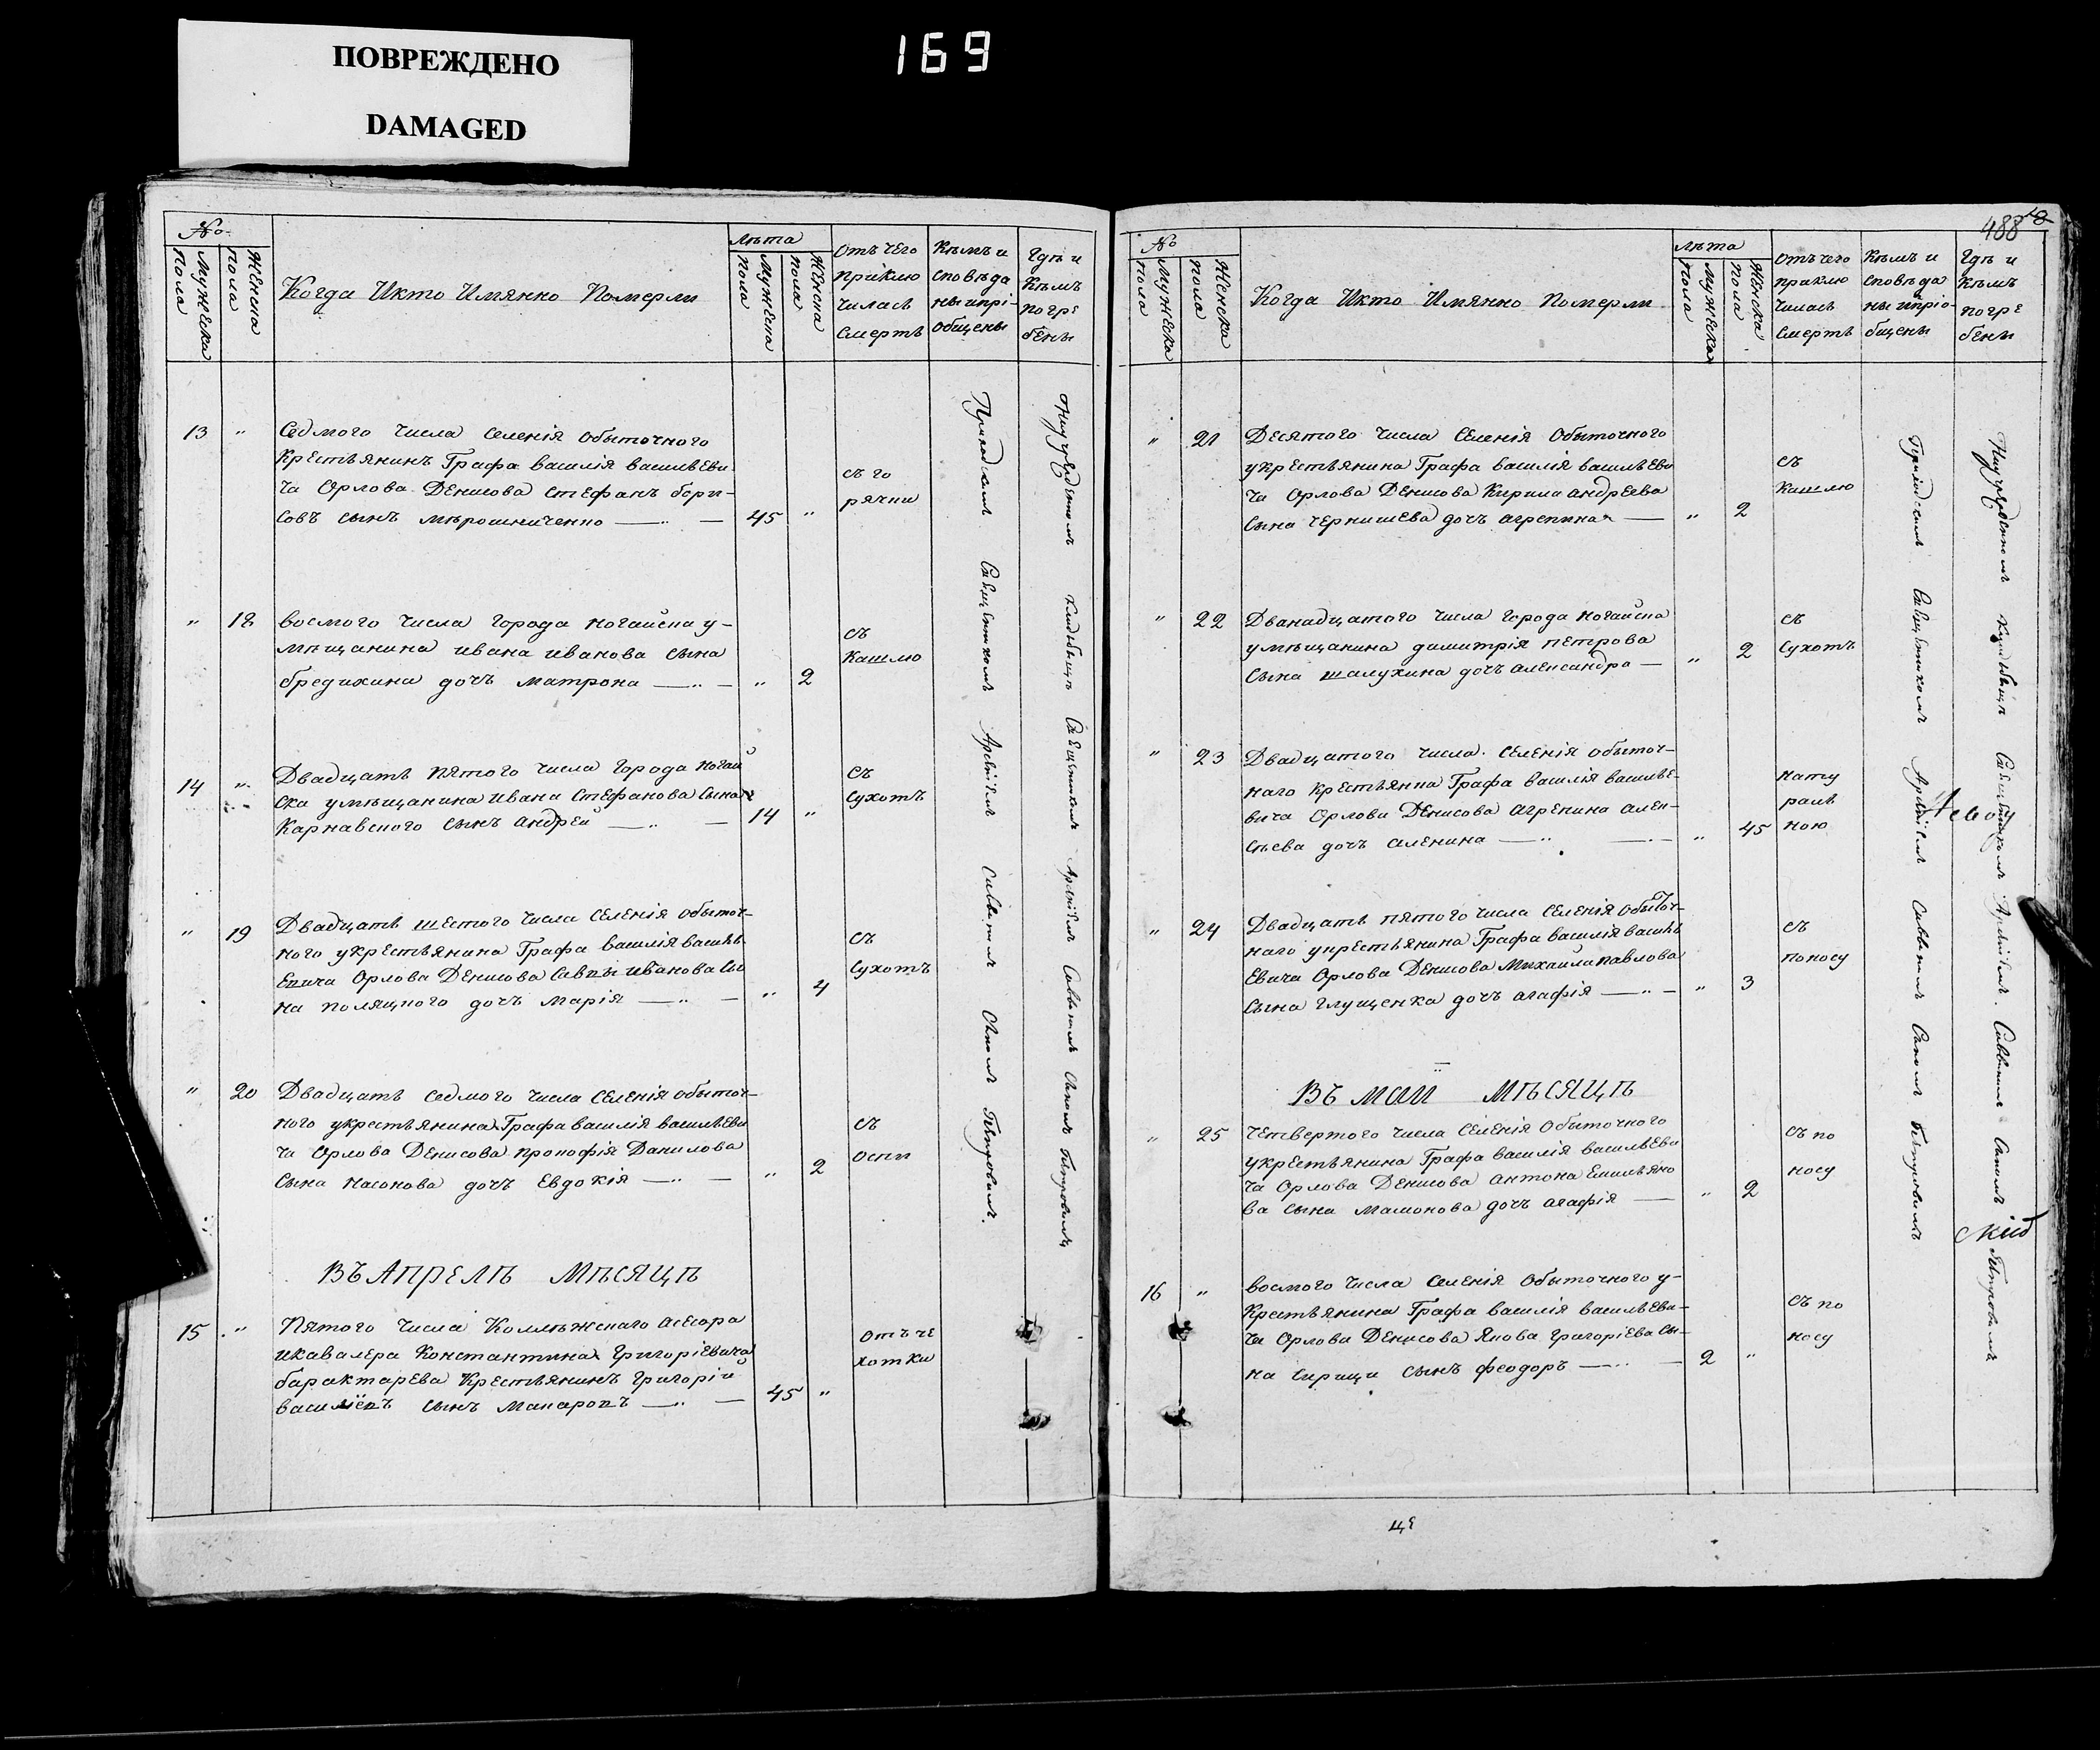 ПОВРЕЖДЕНО
DAMAGED
169
№
Мужеска Пола
Женска Пола
Когда Икто Имянно Померли
лѣта
Мужеска Пола
Женска пола
Отъ чего
приклю
чиласъ
Смертъ
Кѣмъ и
споведа
ны ипрі-
общены
Гдѣ и
Кѣмъ
погре
бены
13 "
Седмого числа Селенія Обыточного
Крестъянинъ Графа василія васильеви
ча Орлова Денисова Стефанъ бори-
совъ сынъ мѣрошниченко
45 "
съ го
рячки
" 18
восмого числа города Ногайска у-
мѣщанина ивана иванова сына
бредихина дочъ матрона
" 2
съ
Кашлю
14 "
Двадцатъ пятого числа города Ногай
ска умѣщанина ивана Стефанова сына
Карнавского сынъ андрей
14 "
съ
сухотъ
" 19
Двадцатъ шестого числа Селенія обыточ-
ного укрестъянина Графа василія василь
евича Орлова Денисова Саввы иванова сы
на полящного дочъ марія
" 4
съ
сухотъ
" 20
Двадцатъ седмого числа Селенія обыточ-
ного укрестъянина Графа василія васильеви
ча Орлова Денисова прокофія Данилова
сына насонова дочъ Евдокія
" 2
съ
оспи
Въ Апрелѣ Мѣсяцѣ
15 "
Пятого числа Коллѣжскаго Асесора
икавалера Константина Григоріевича
барактарева Крестъянинъ Григорій
василіевъ сынъ макаровъ
45 "
отъ че
хотки
Приходскимъ Священникомъ Саввою Петровимъ.
488
№
Мужеска пола
Женска пола
Когда Икто Имянно Померли
лѣта
Мужеска пола
Женска пола
отъ чего
приклю
чиласъ
Смертъ
Кѣмъ и
споведа
ны ипріо-
бщены
Гдѣ и
Кѣмъ
погре
бены
" 21
Десятого числа Селенія Обыточного
укрестъянина Графа василія васильеви
ча Орлова Денисова Кирила андреева
сына чернишева дочъ агрепина
" 2
съ
Кашлю
" 22
Дванадцатого числа города Ногайска
умѣщанина димитрія петрова
сына шалухина дочъ александра
" 2
съ
сухотъ
" 23
Двадцатого числа Селенія обыточ-
наго крестъянка Графа василія василье-
вича Орлова Денисова Агрепина алек-
сѣева дочъ аленина
" 45
нату
раль
ною
" 24
Двадцатъ пятого числа Селенія Обыточ-
наго укрестъянина Графа василія василь
евича Орлова Денисова Михаила павлова
сына глущенка дочъ агафія
" 3
съ
поносу
Въ маи мѣсяцѣ
" 25
четвертого числа Селенія Обыточного
укрестъянина Графа василія васильеви
ча Орлова Денисова антона Емильяно
ва сына мамонова дочъ агафія
" 2
съ по
носу
16 "
восмого числа Селенія Обыточного у-
Крестъянина Графа василія васильеви-
ча Орлова Денисова Якова григоріева сы-
на чирици сынъ феодоръ
2 "
съ по
носу